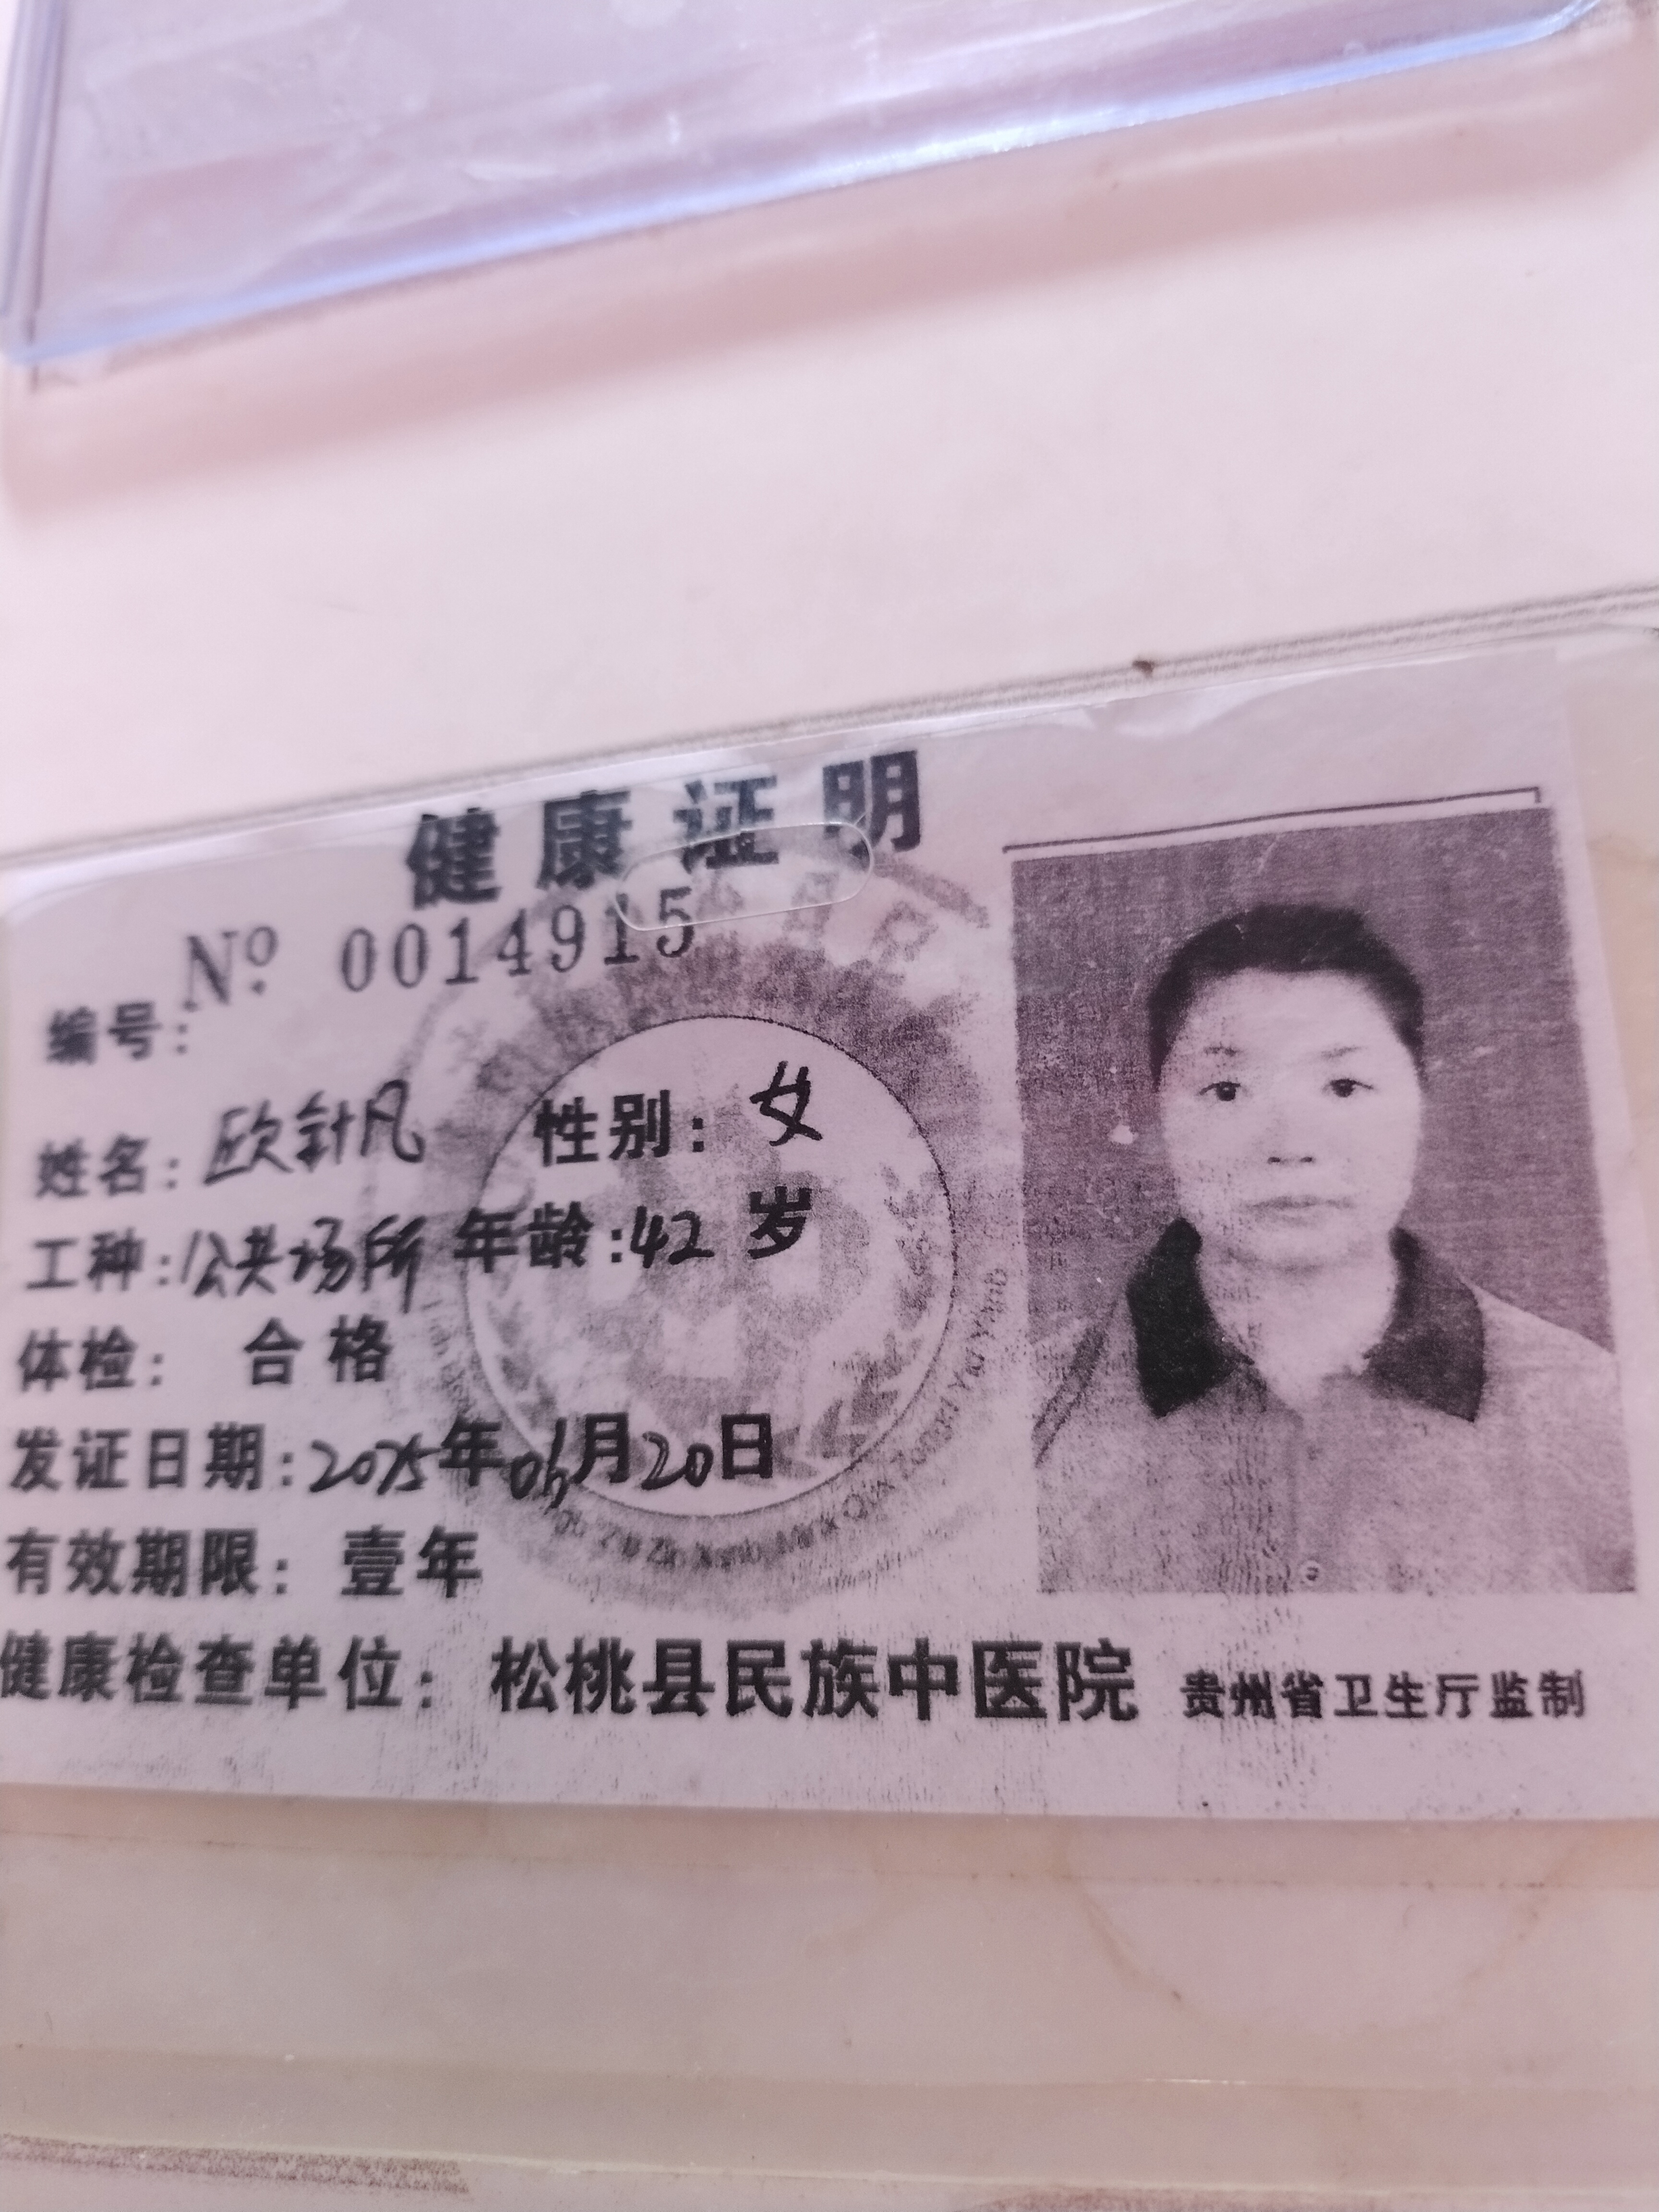 健康证明
Nº 0014915
编号:
姓名: 欧针凡 性别: 女
工种: 公共场所 年龄: 42 岁
体检: 合格
发证日期: 2025年06月20日
有效期限: 壹年
健康检查单位: 松桃县民族中医院 贵州省卫生厅监制